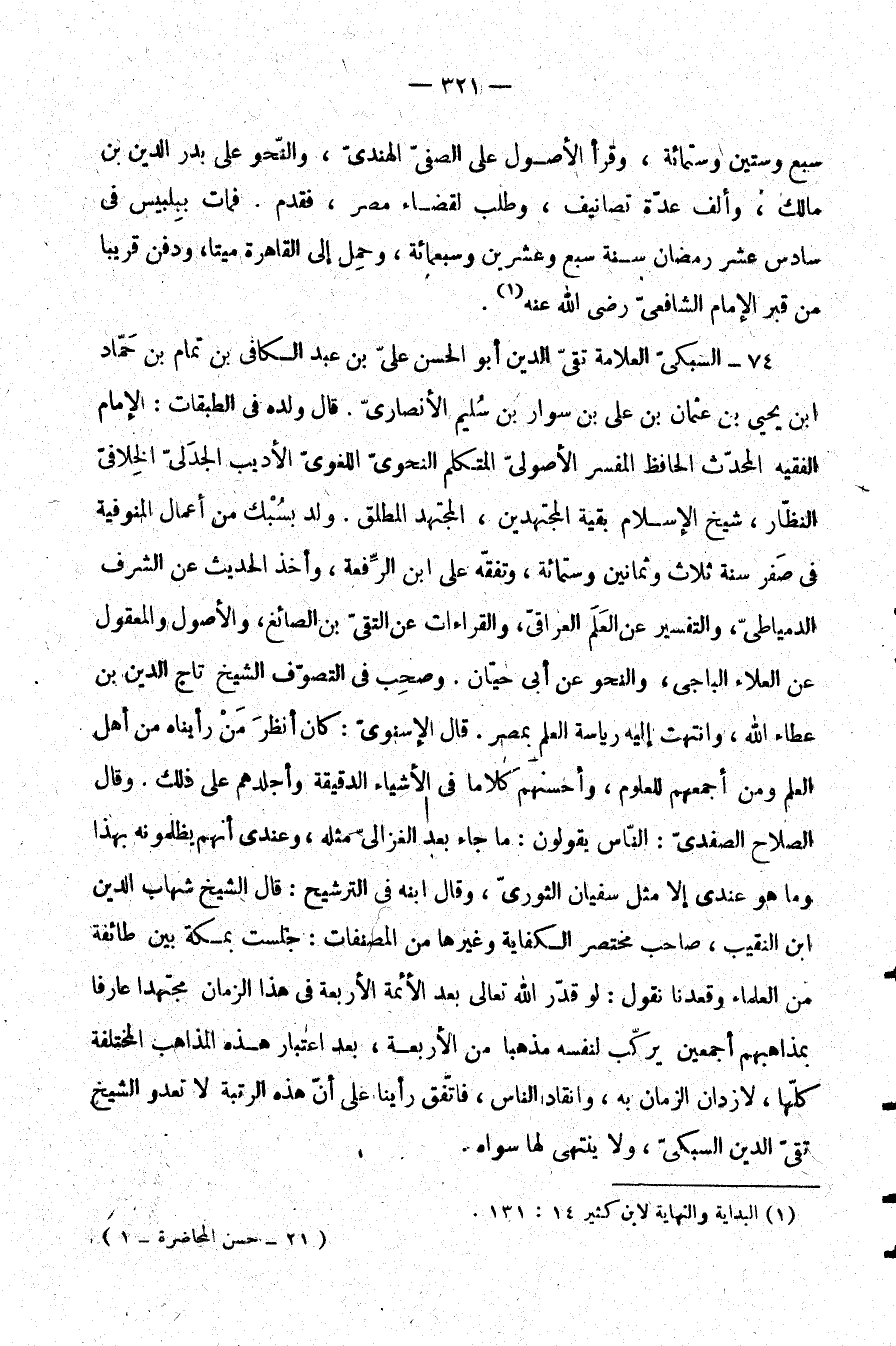 — ٣٢١ —
سبع وستين وستمائة ، وقرأ الأصول على الصفىّ الهندىّ ، والنّحو على بدر الدين بن
مالك ، وألف عدّة تصانيف ، وطلب لقضاء مصر ، فقدم . فمات ببِلبيس فى
سادس عشر رمضان سنة سبع وعشرين وسبعمائة ، وحمِل إلى القاهرة ميتا، ودفن قريبا
من قبر الإمام الشافعىّ رضى الله عنه(١) .
٧٤ – السبكىّ العلامة تقىّ الدين أبو الحسن علىّ بن عبد الكافى بن تمام بن حَمّاد
ابن يحيى بن عثمان بن على بن سوار بن سُليم الأنصارىّ . قال ولده فى الطبقات : الإمام
الفقيه المحدّث الحافظ المفسر الأصولىّ المتكلم النحوىّ اللغوىّ الأديب الجدَلىّ الخِلافىّ
النظّار ، شيخ الإسلام بقية المجتهدين ، المجتهد المطلق . ولد بسُبْك من أعمال المنوفية
فى صَفر سنة ثلاث وثمانين وستمائة ، وتفقّه على ابن الرِّفعة ، وأخذ الحديث عن الشرف
الدمياطىّ، والتفسير عن العَلَم العراقىّ، والقراءات عن التقىّ بن الصائغ، والأصول والمعقول
عن العلاء الباجى، والنحو عن أبى حيّان . وصحِب فى التصوّف الشيخ تاج الدين بن
عطاء الله ، وانتهت إليه رياسة العلم بمصر . قال الإسنوىّ : كان أنظرَ مَنْ رأيناه من أهل
العلم ومن أجمعهم للعلوم ، وأحسنهم كلاما فى الأشياء الدقيقة وأجلدهم على ذلك . وقال
الصلاح الصفدىّ : النّاس يقولون : ما جاء بعد الغزالىّ مثله ، وعندى أنهم يظلمونه بهذا
وما هو عندى إلا مثل سفيان الثورىّ ، وقال ابنه فى الترشيح : قال الشيخ شهاب الدين
ابن النقيب ، صاحب مختصر الكفاية وغيرها من المصنفات : جلست بمكة بين طائفة
من العلماء وقعدنا نقول : لو قدّر الله تعالى بعد الأئمة الأربعة فى هذا الزمان مجتهدا عارفا
بمذاهبهم أجمعين يركّب لنفسه مذهبا من الأربعة ، بعد اعتبار هذه المذاهب المختلفة
كلّها ، لازدان الزمان به ، وانقاد الناس ، فاتّفق رأينا على أنّ هذه الرتبة لا تعدو الشيخ
تقىّ الدين السبكىّ ، ولا ينتهى لها سواه .
(١) البداية والنهاية لابن كثير ١٤ : ١٣١ .
( ٢١ – حسن المحاضرة – ١ )